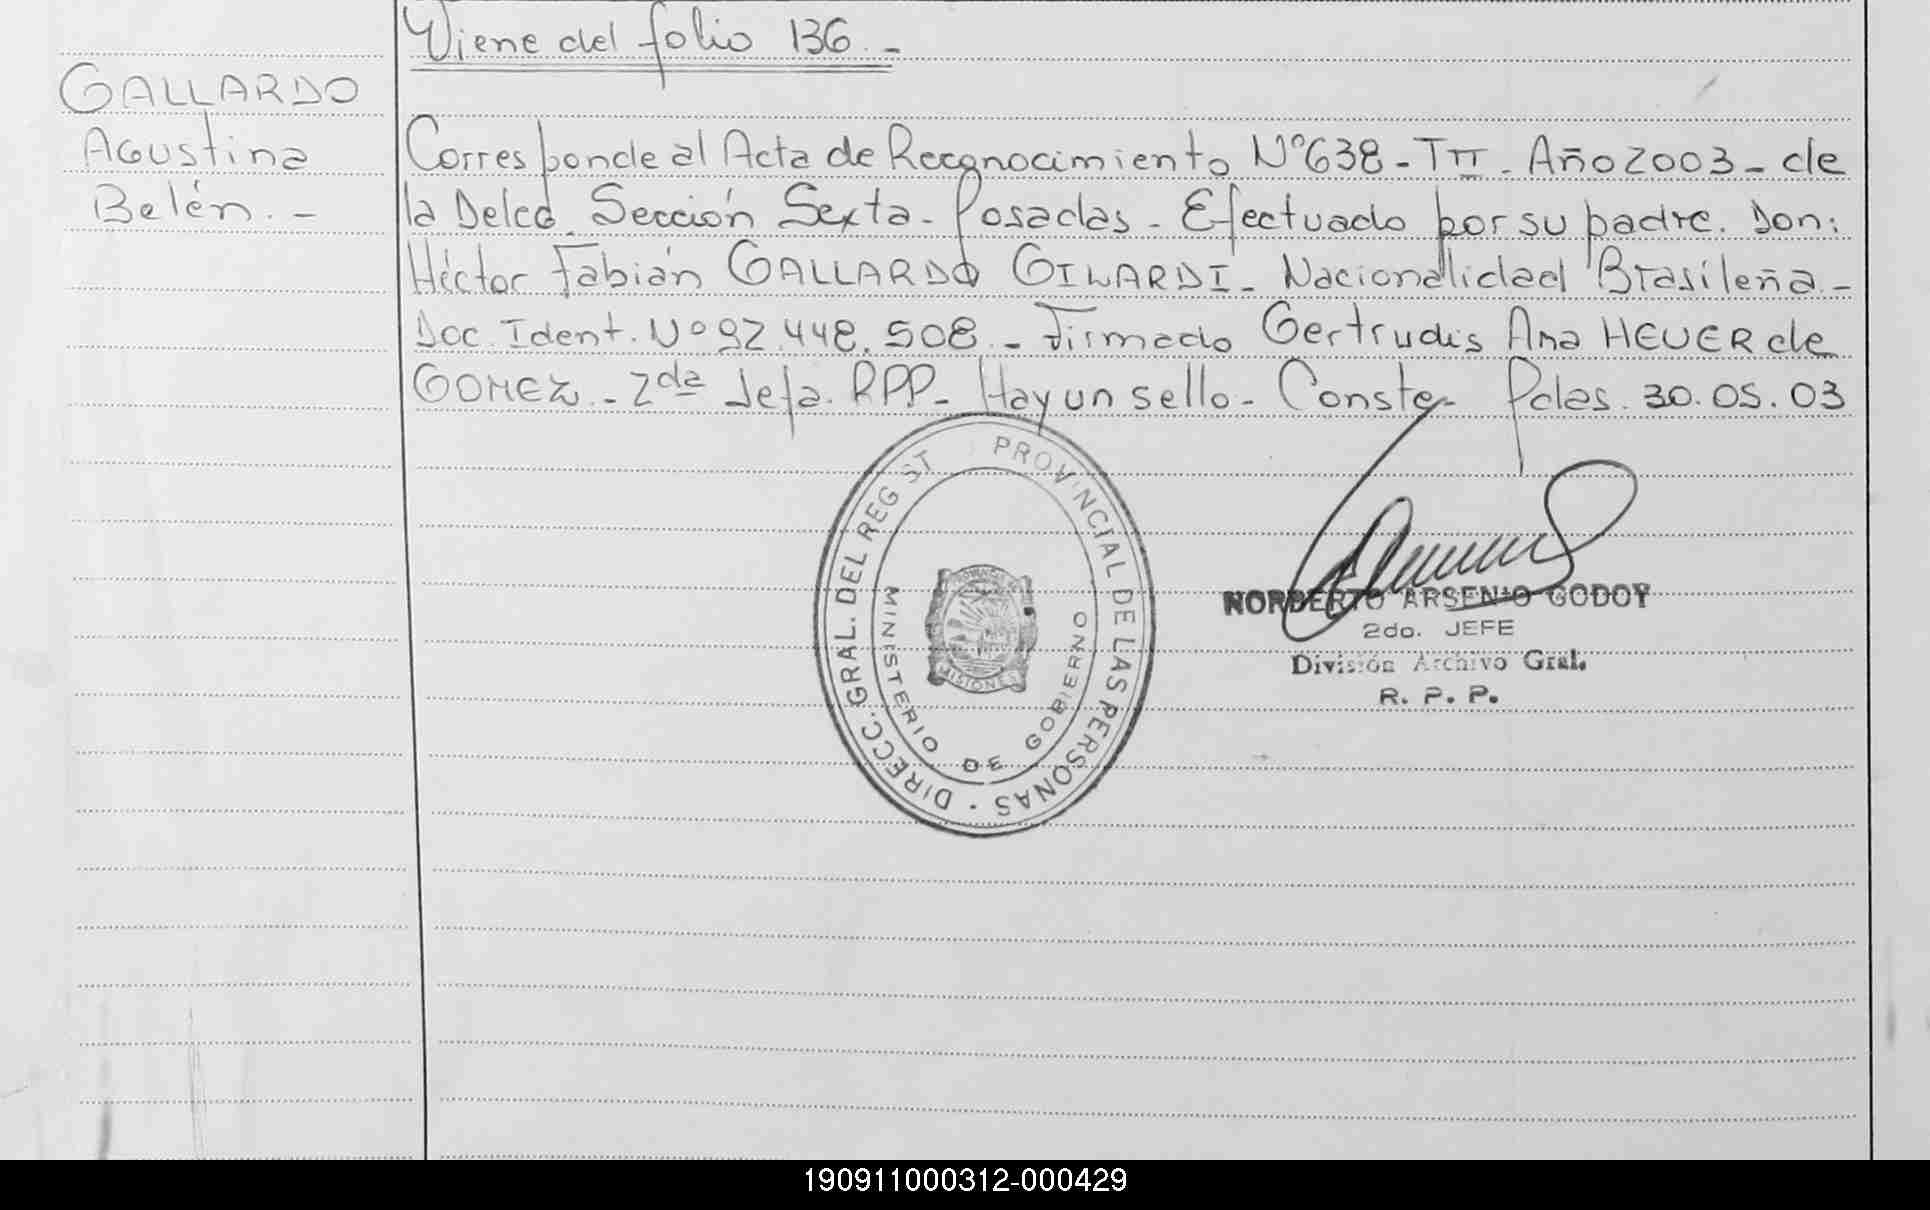 Viene del folio 136.-
GALLARDO
Agustina
Belén.-
Corresponde al Acta de Reconocimiento Nº638-TII-Año2003-de
la Delcd. Sección Sexta-Posadas-Efectuado por su padre. Don:
Héctor Fabián GALLARDO GILARDI-Nacionalidad Brasileña-
Doc. Ident. Nº92.448.508.-Firmado Gertrudis Ana HEUER de
GOMEZ.-2da Jefa. RPP-Hay un sello-Conste- Pdas. 30.05.03
DIRECC. GRAL. DEL REG ST PROVINCIAL DE LAS PERSONAS ·
MINISTERIO DE GOBIERNO
MISIONES
NORBERTO ARSENIO GODOY
2do. JEFE
División Archivo Gral.
R. P. P.
190911000312-000429